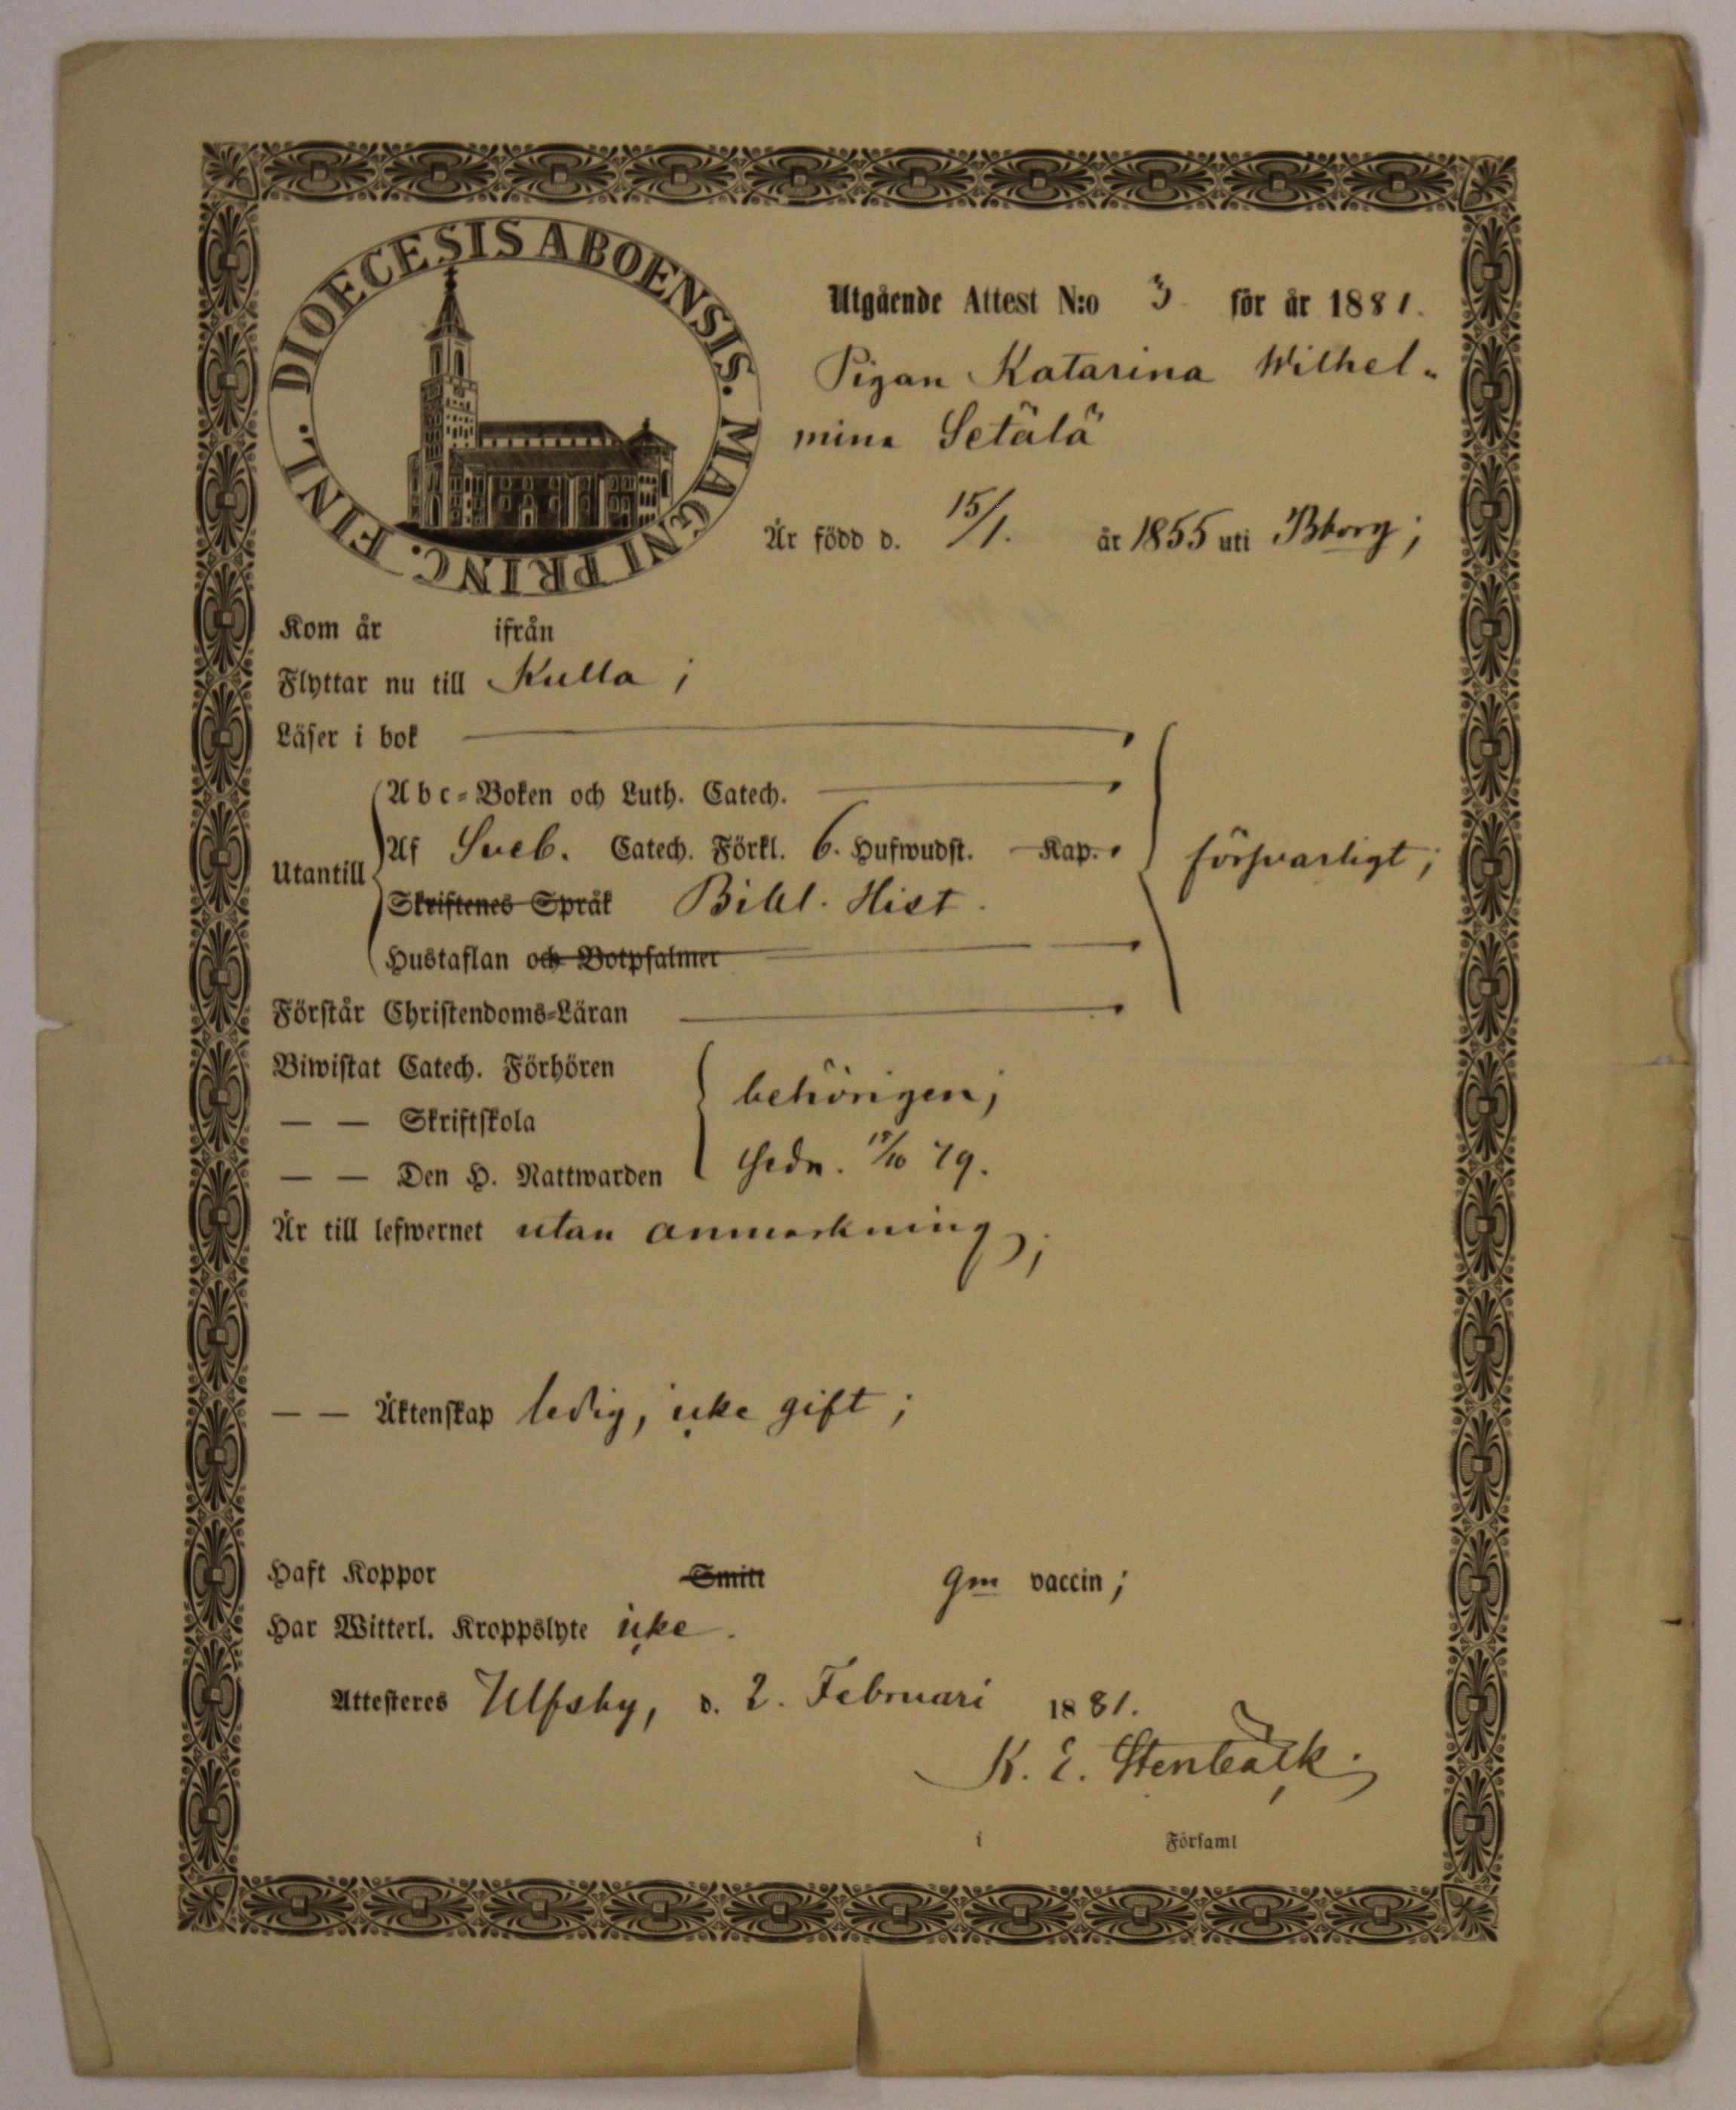 DIOECESIS ABOENSIS. MAGNI PRINC. FINL.
Utgående Attest N:o 3 för år 1881.
Pigan Katarina Wilhel-
mina Setälä
Är född d. 15/1. år 1855 uti Bborg;
Kom år ifrån
Flyttar nu till Kulla;
Läser i bok
Abc-Boken och Luth. Catech.
Utantill
Af Sveb. Catech. Förkl. 6. Hufwudst. Kap.
försvarligt;
Skriftenes Språk Bibl. Hist.
Hustaflan och Botpsalmer
Förstår Christendoms-Läran
Biwistat Catech. Förhören
behörigen;
— — Skriftskola
— — Den H. Nattwarden
sedn. 15/10 79.
Är till lefwernet utan anmärkning;
— — Äktenskap ledig, icke gift;
Haft Koppor Smitt gm vaccin;
Har Witterl. Kroppslyte icke.
Attesteres Ulfsby, d. 2. Februari 1881.
K. E. Stenbäck.
i Församl